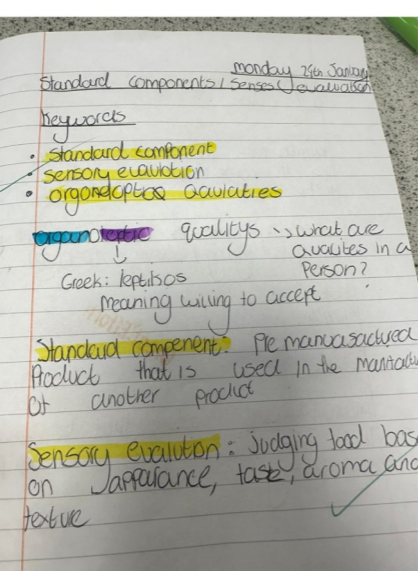 monday 29th January
Standard components / Senses evaluation
Keywords
• Standard component
• Sensory evaluation
• organoleptic qaulaties
organoleptic qualitys ->> what are
quaulites in a
Person?
Greek: leptikos
meaning willing to accept
Standard compenent: Pre manufactured
Product that is used in the
of another product
Sensory evalution: Judging food bas
on appearance, taste, aroma and
texture